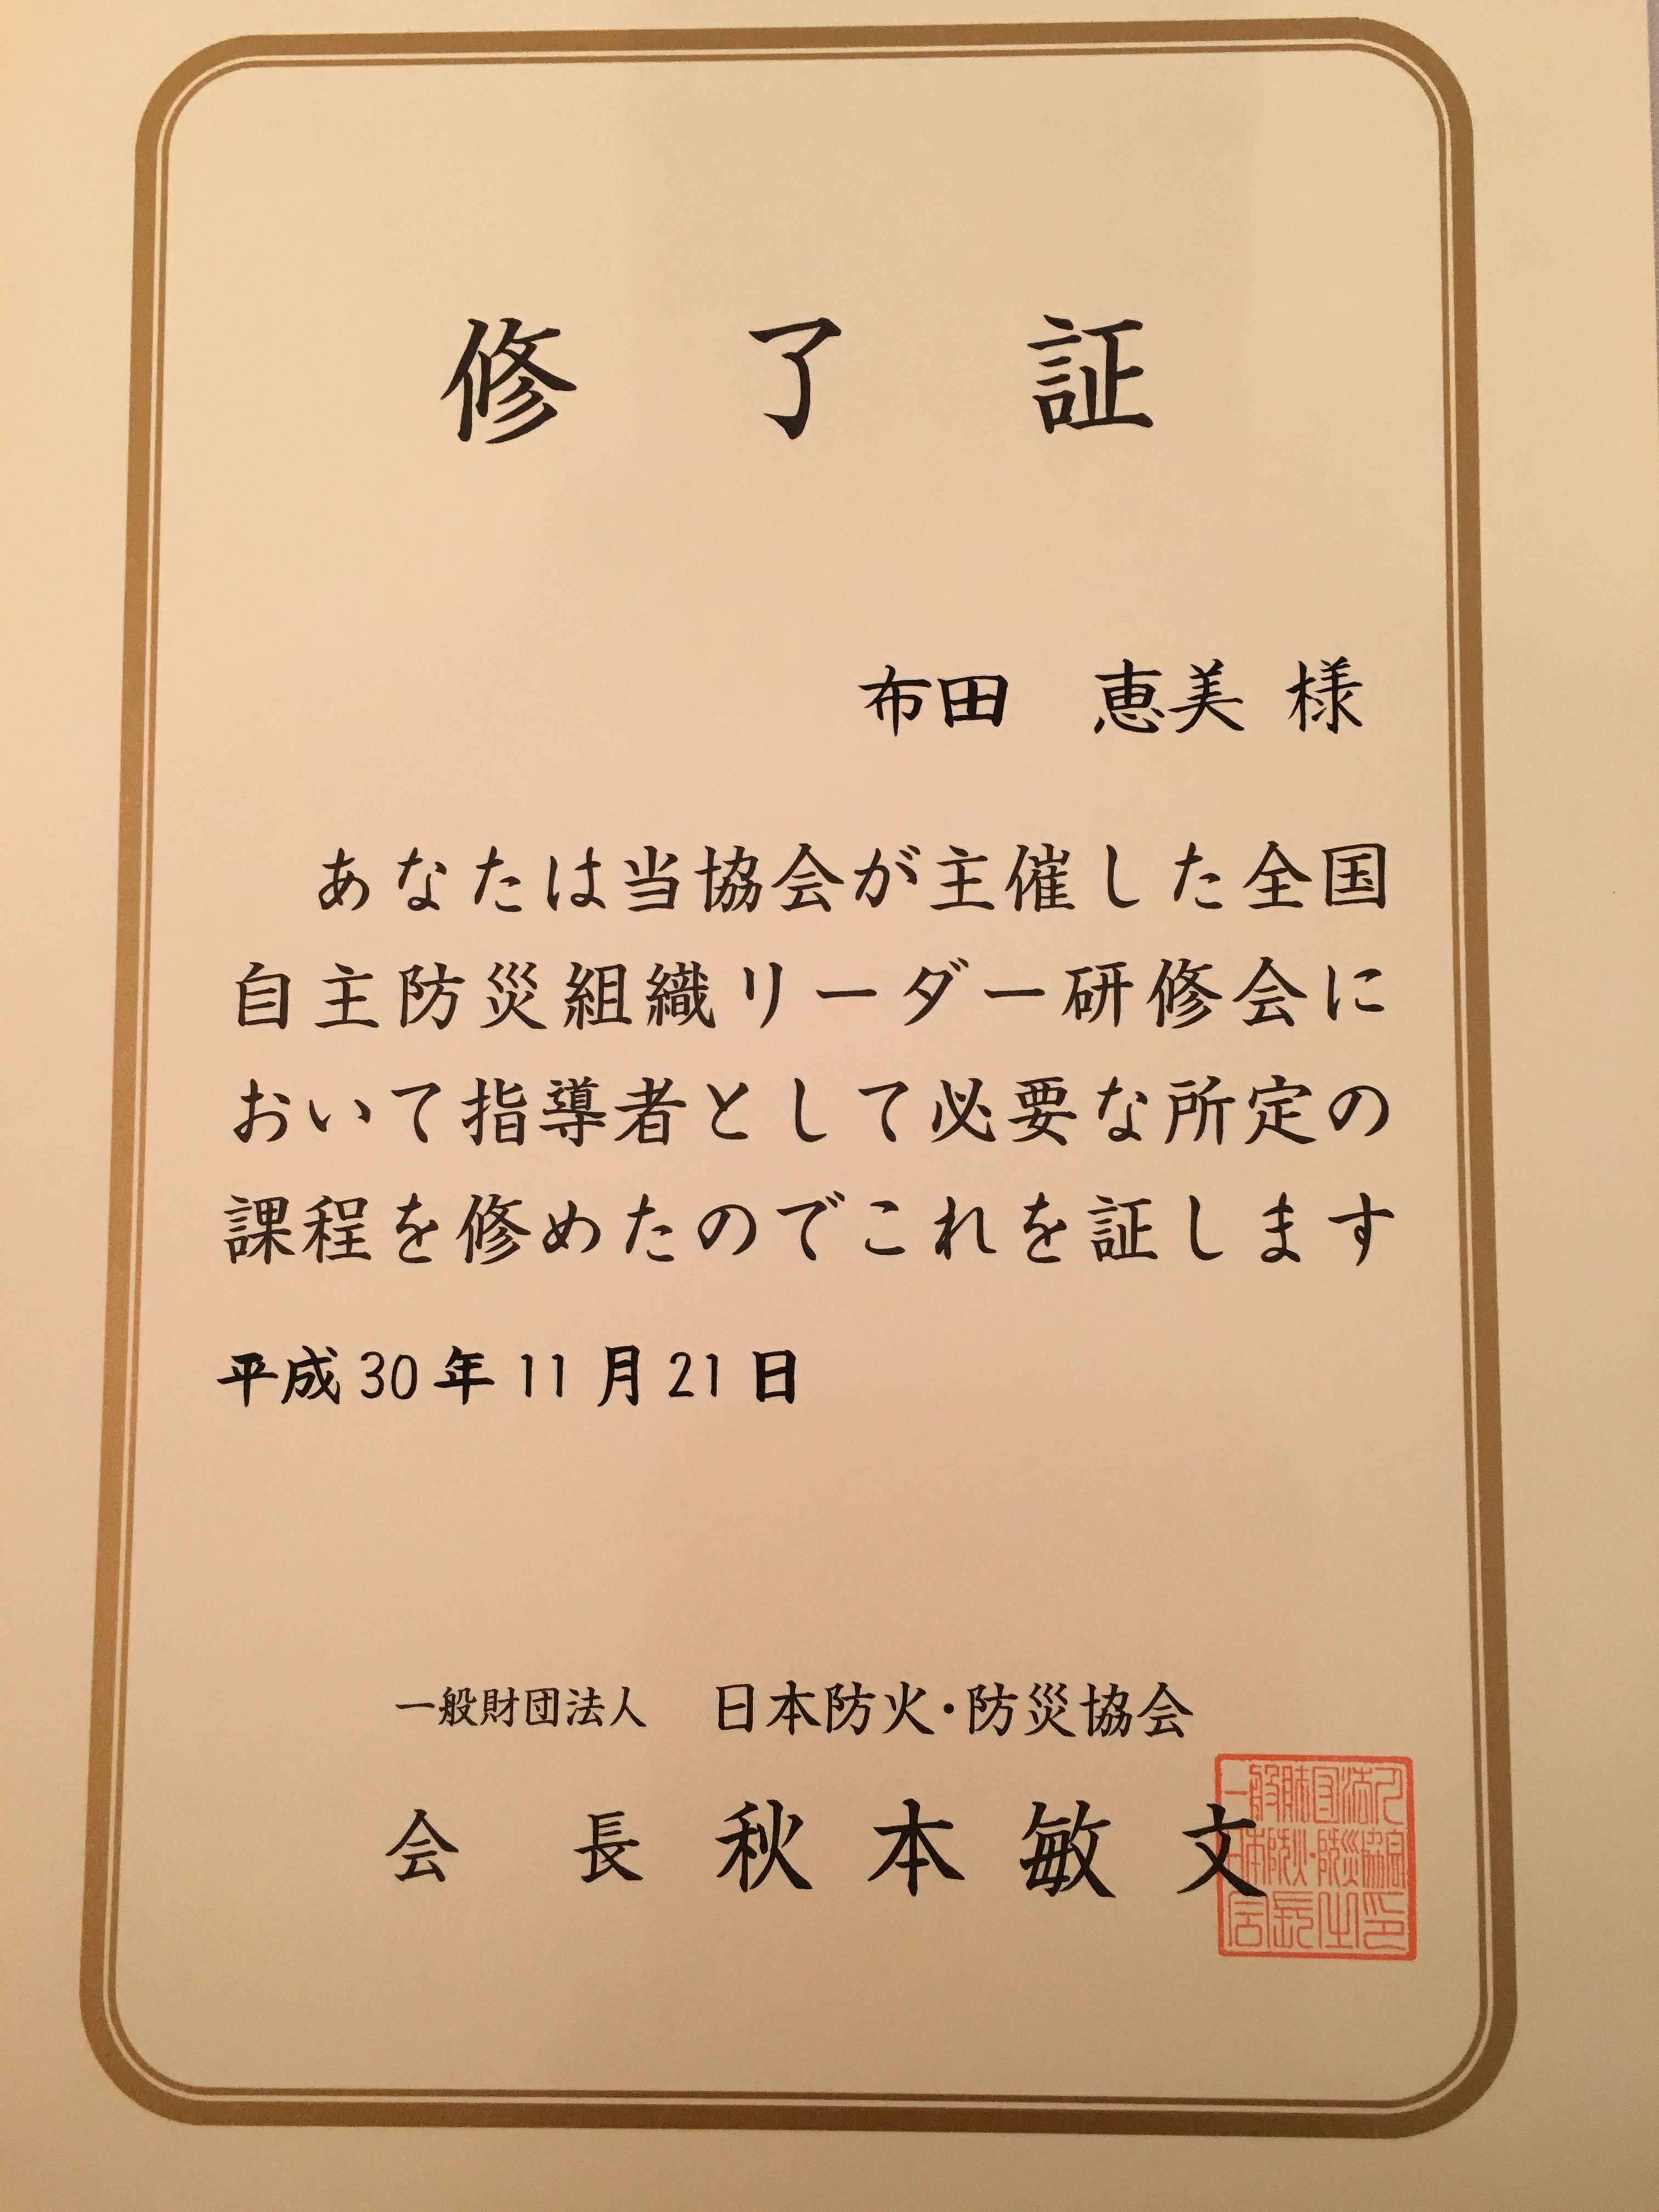 修了証
布田 恵美 様
あなたは当協会が主催した全国
自主防災組織リーダー研修会に
おいて指導者として必要な所定の
課程を修めたのでこれを証します
平成30年11月21日
一般財団法人 日本防火・防災協会
会長 秋本敏文
一般財団法人
日本防火・防災協会
会長之印